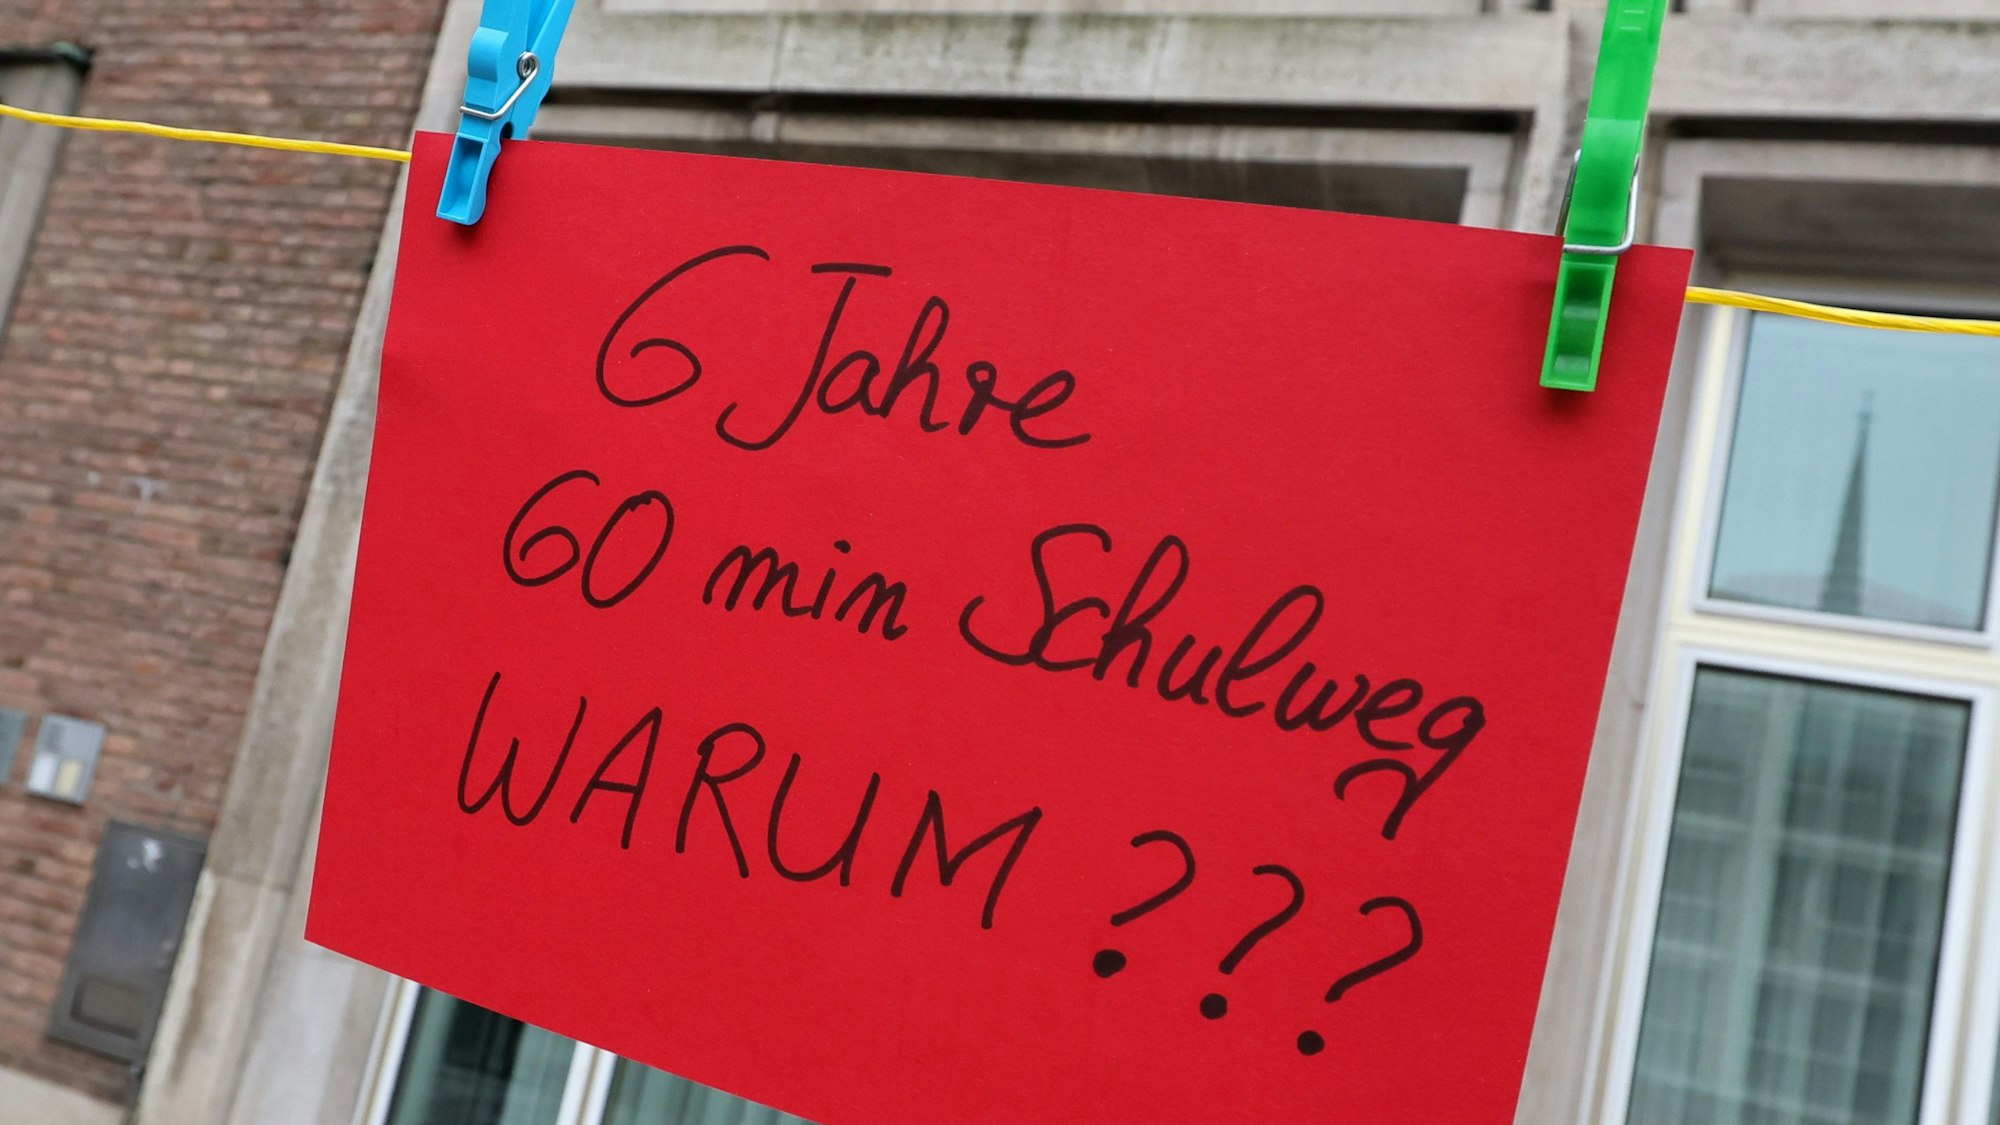 6 Jahre
60 min Schulweg
WARUM ???